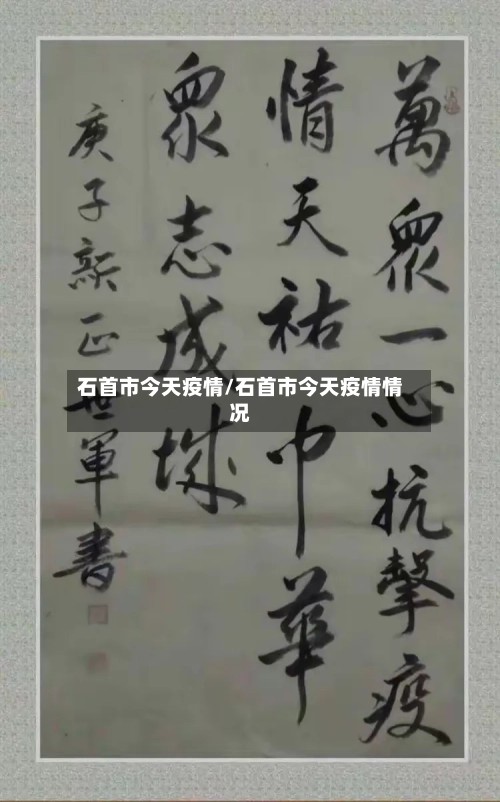 萬眾一心抗擊疫
情天祐中華
眾志成城
庚子新正世軍書
石首市今天疫情/石首市今天疫情情
况